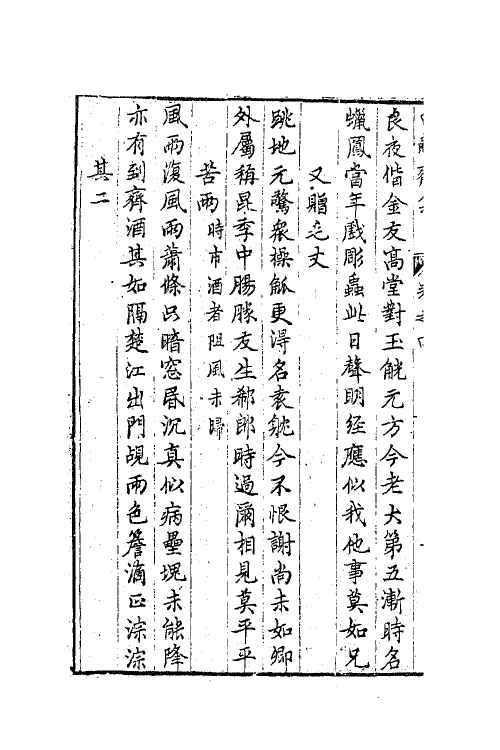 良夜偕金友高堂對玉觥元方今老大第五漸時名
蠟鳳當年戲彫蟲此日聲明經應似我他事莫如兄
又贈
跳地元驚衆操觚更得名袁虨今不恨謝尚未如卿
外屬稱昆季中腸勝友生鄰郎時過爾相見莫平平
苦雨時市酒者阻風未歸
風雨復風雨蕭條只暗窓昏沉真似病壘塊未能降
亦有到齊酒其如隔楚江出門覘雨色簷滴正淙淙
其二